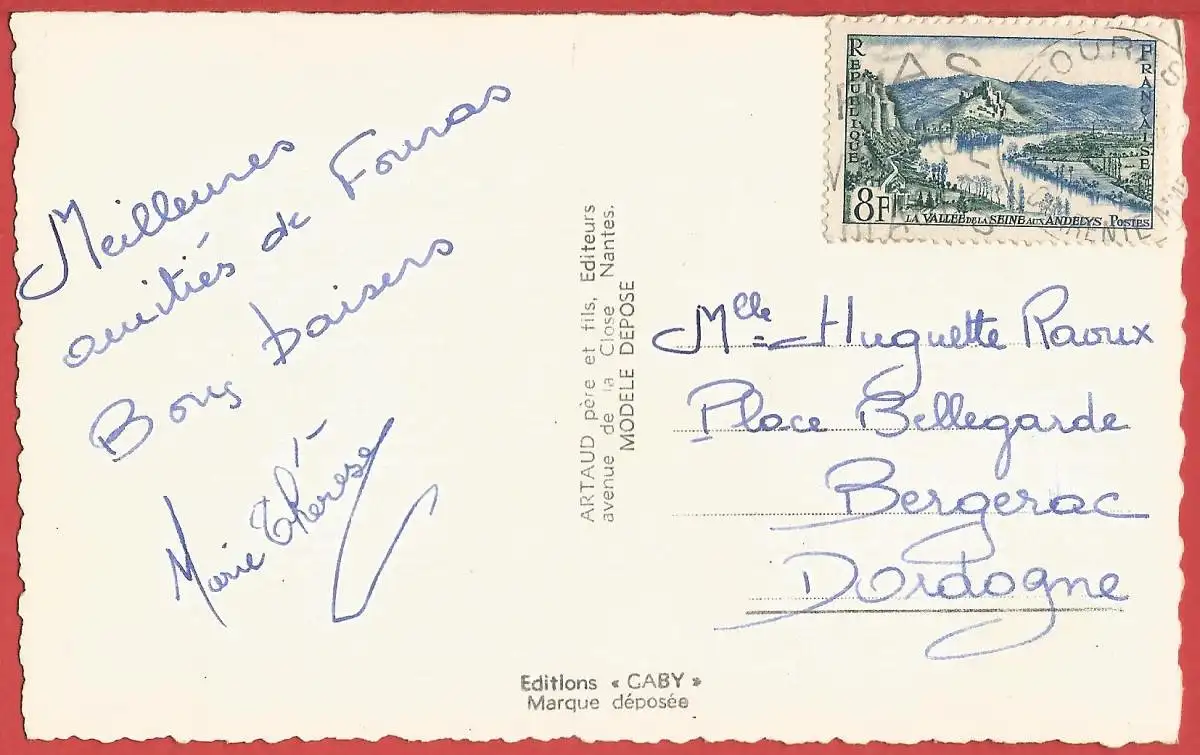 Meilleures
amitiés de Fouras
Bons baisers
Marie Thérèse
ARTAUD père et fils, Editeurs
avenue de la Close Nantes.
MODELE DEPOSE
Editions « GABY »
Marque déposée
REPUBLIQUE FRANÇAISE
8F
LA VALLÉE DE LA SEINE AUX ANDELYS POSTES
FOURAS
Mlle Huguette Raoux
Place Bellegarde
Bergerac
Dordogne